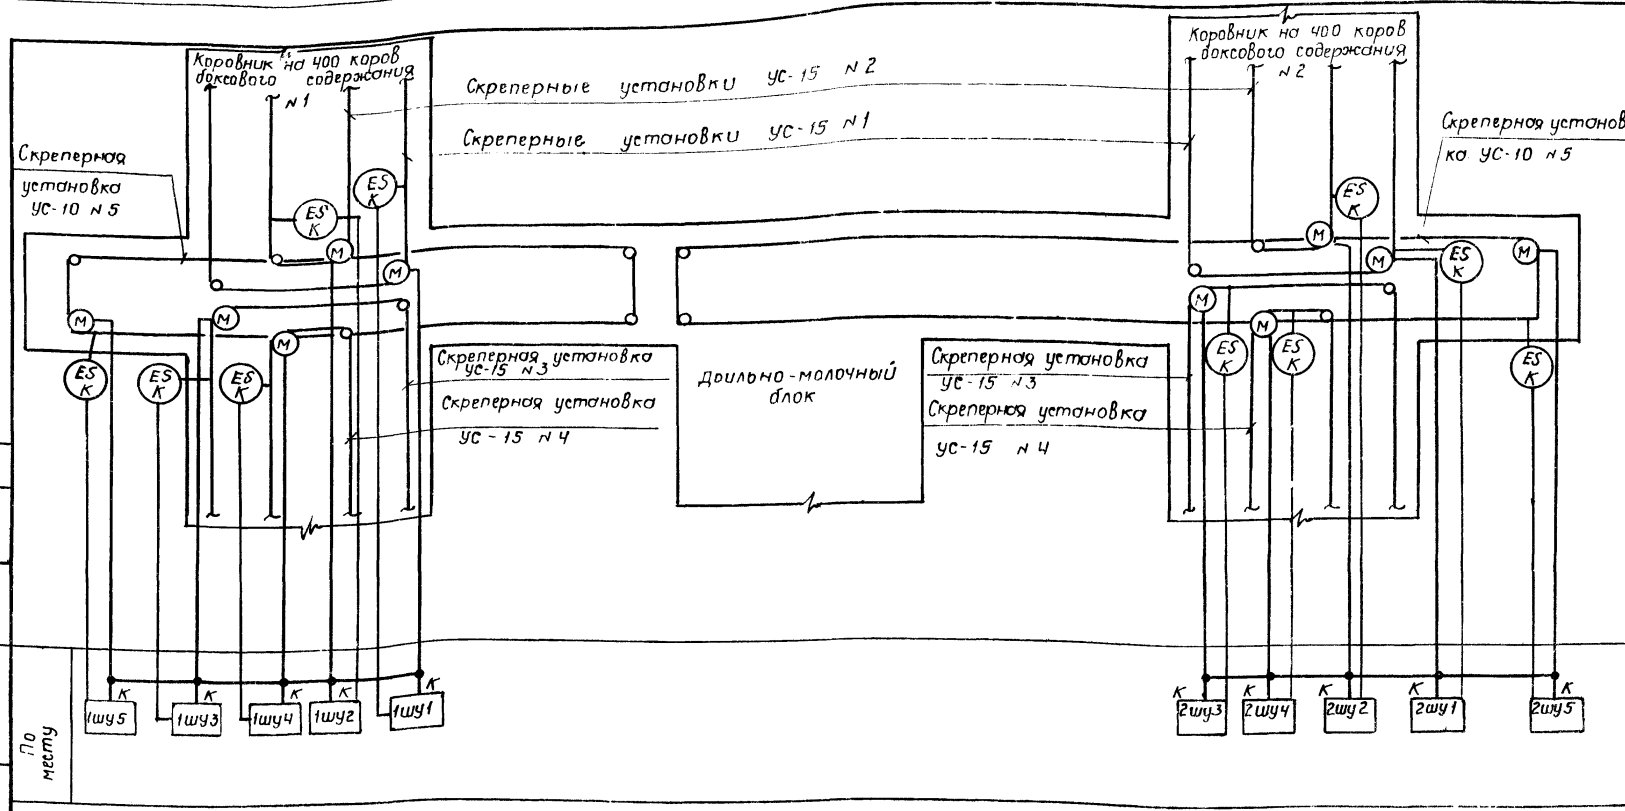 Коровник на 400 коров
боксового содержания
N 1
Скреперные установки УС-15 N 2
Скреперные установки УС-15 N 1
Коровник на 400 коров
боксового содержания
N 2
Скреперная установ
ка УС-10 N 5
Скреперная
установка
УС-10 N 5
ES
К
ES
К
ES
К
ES
К
М
М
М
М
М
М
М
М
М
М
Скреперная установка
УС-15 N 3
Скреперная установка
УС-15 N 4
Доильно-молочный
блок
Скреперная установка
УС-15 N 3
Скреперная установка
УС-15 N 4
ES
К
ES
К
ES
К
ES
К
ES
К
ES
К
К
К
К
К
К
К
К
К
К
К
1шу5
1шу3
1шу4
1шу2
1шу1
2шу3
2шу4
2шу2
2шу1
2шу5
По
месту